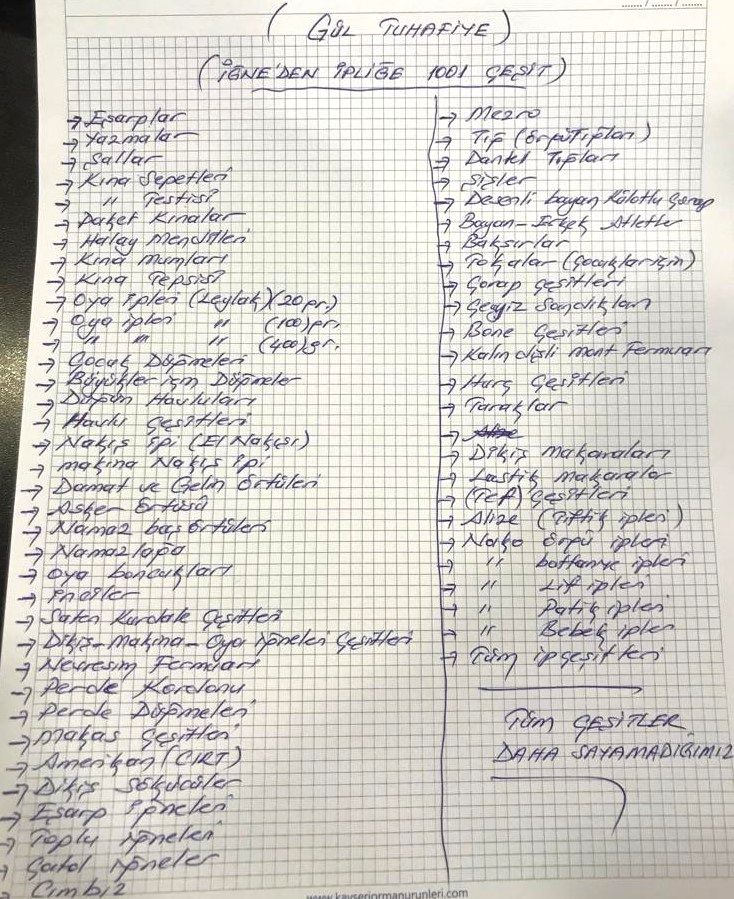 (GÜL TUHAFİYE)
(İĞNE'DEN İPLİĞE 1001 ÇEŞİT)
→ Eşarplar
→ Yazmalar
→ Şallar
→ Kına Sepetleri
→ " Testisi
→ Paket Kınalar
→ Halay Mendilleri
→ Kına mumları
→ Kına Tepsisi
→ Oya İpleri (Leylak) (20 gr.)
→ Oya ipleri " (100) gr.
→ " " " (400) gr.
→ Çocuk Düğmeleri
→ Büyükler için Düğmeler
→ Düğün Havluları
→ Havlu Çeşitleri
→ Nakış İpi (El Nakışı)
→ makina Nakış İpi
→ Damat ve Gelin Örtüleri
→ Asker Örtüsü
→ Namaz baş örtüleri
→ Namazlağa
→ Oya boncukları
→ İnciler
→ Saten Kurdale Çeşitleri
→ Dikiş-Makina-Oya iğneleri Çeşitleri
→ Nevresim Fermuarı
→ Perde Kordonu
→ Perde Düğmeleri
→ Makas Çeşitleri
→ Amerikan (CIRT)
→ Dikiş Sökücüler
→ Eşarp İğneleri
→ Toplu iğneleri
→ Çatal iğneler
→ Cımbız
→ Mezro
→ Tığ (Örgü Tığları)
→ Dantel Tığları
→ Şişler
→ Desenli bayan Külotlu Çorap
→ Bayan-Erkek Atletler
→ Baksırlar
→ Tokalar (Çocuklar için)
→ Çorap Çeşitleri
→ Çeyiz Sandıkları
→ Bone Çeşitleri
→ Kalın dişli mont Fermuarı
→ Harç Çeşitleri
→ Taraklar
→ Alize
→ Dikiş Makaraları
→ Lastik Makaralar
→ (Tef) Çeşitleri
→ Alize (Tiftik ipleri)
→ Nako Örgü ipleri
→ " battaniye ipleri
→ " Lif ipleri
→ " Patik ipleri
→ " Bebek ipleri
→ Tüm ip çeşitleri
TÜM ÇEŞİTLER
DAHA SAYAMADIĞIMIZ
www.kayseriormanurunleri.com